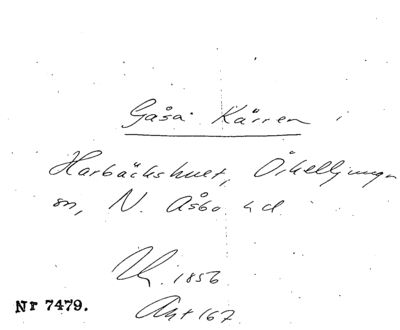 Gåsa Kärren i
Harbäckshult, Örkelljunga
sn, N. Åsbo hd.
1856
Akt 167
Nr 7479.